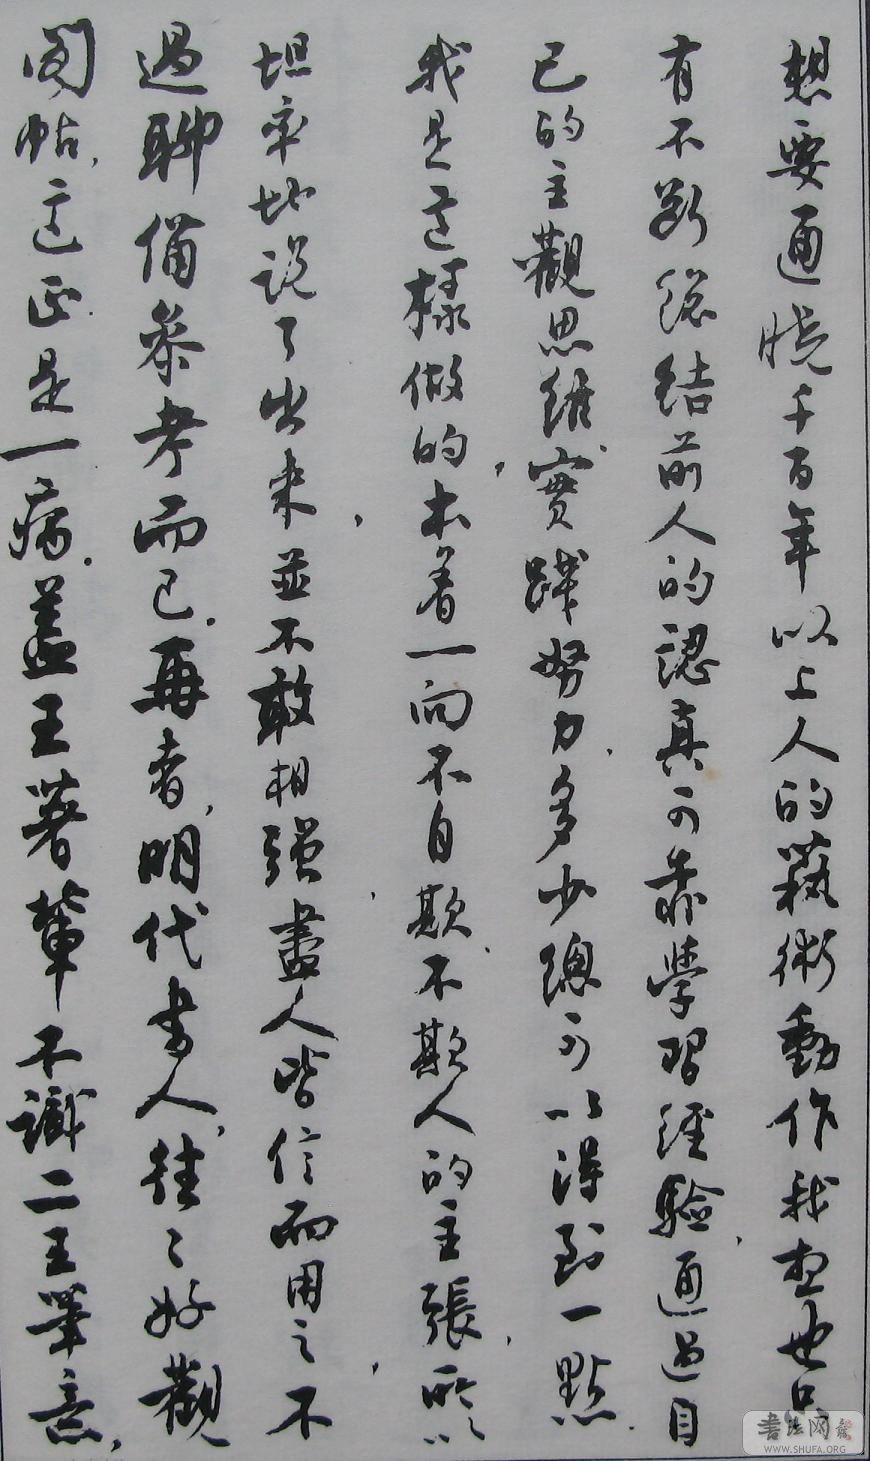 想要通曉千百年以上人的藝術動作我想也只
有不斷總結前人的認真可靠學習經驗，通過自
己的主觀思維，實踐努力，多少總可以得到一點。
我是這樣做的，本着一向不自欺不欺人的主張，所以
坦率地說了出來，並不敢相強盡人皆信而用之，不
過聊備參考而已。再者，明代書人，往々好觀
閣帖，這正是一病。蓋王著輩不識二王筆意，
書法网
WWW.SHUFA.ORG